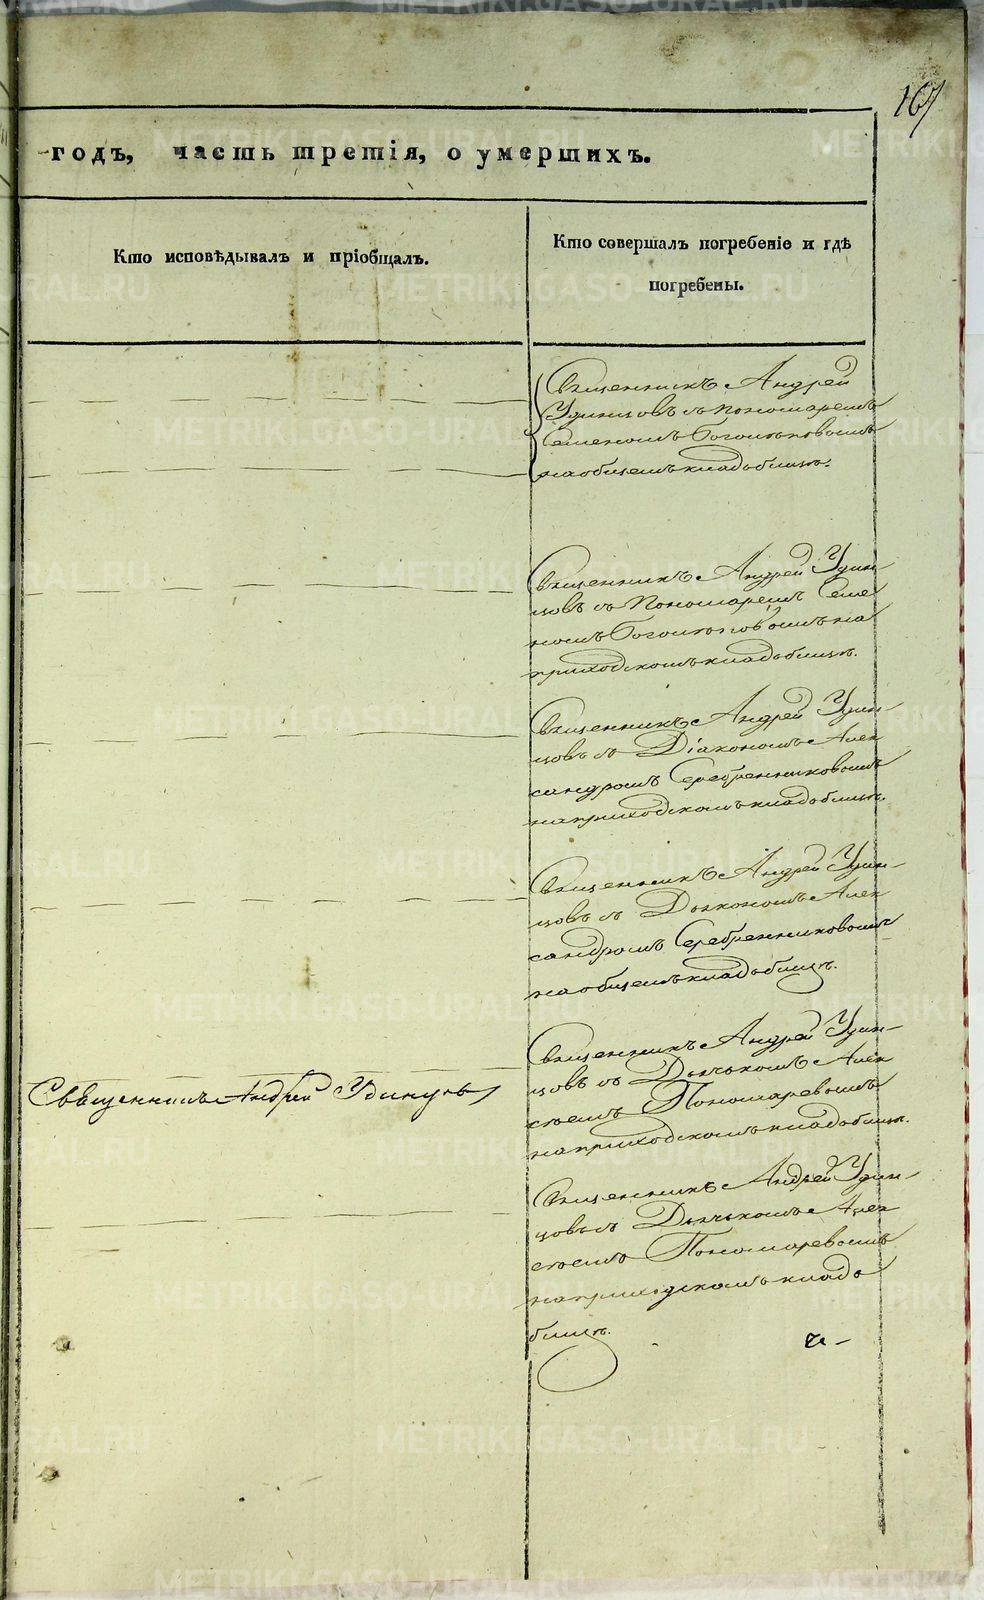 167
годъ, часть третія, о умершихъ.
Кто исповѣдывалъ и пріобщалъ.
Кто совершалъ погребеніе и гдѣ
погребены.
Священникъ Андрей
Удинцовъ съ пономаремъ
Семеномъ Боголюповымъ
на общемъ кладбищѣ.
Священникъ Андрей Удин-
цовъ съ Пономаремъ Семе
номъ Боголюповымъ на
приходскомъ кладбищѣ.
Священникъ Андрей Удин-
цовъ съ Діакономъ Алек
сандромъ Серебренниковымъ
на приходскомъ кладбищѣ.
Священникъ Андрей Удин-
цовъ съ Дьякономъ Алек
сандромъ Серебренниковымъ
на общемъ кладбищѣ.
Священникъ Андрей Удинцовъ
Священникъ Андрей Удин-
цовъ съ Дьячкомъ Алек
сѣемъ Пономаревымъ
на приходскомъ кладбищѣ.
Священникъ Андрей Удин-
цовъ съ Дьячкомъ Алек
сѣемъ Пономаревымъ
на приходскомъ кладъ
бищѣ.
METRIKI.GASO-URAL.RU